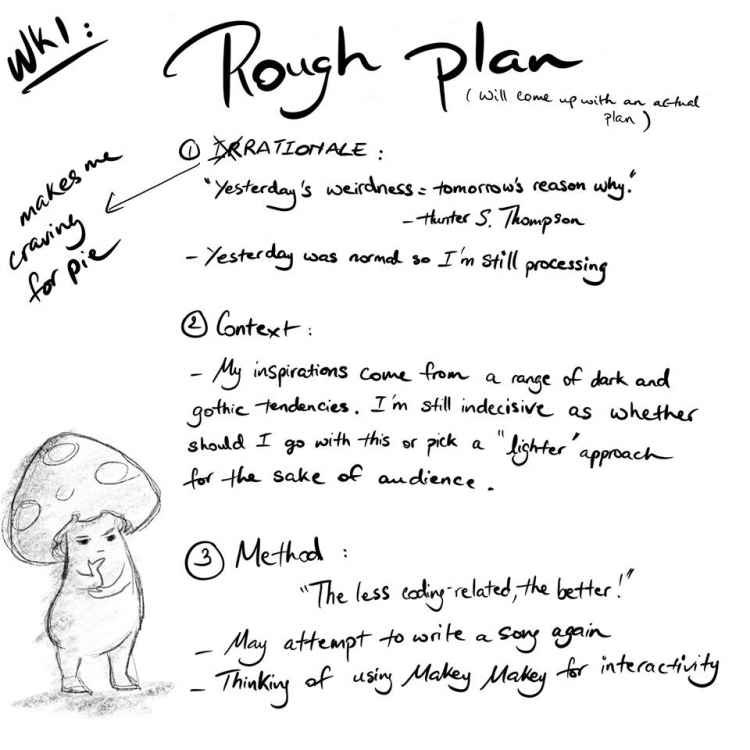 Wk1:
Rough plan
(will come up with an actual
plan)
① IRRATIONALE:
makes me
craving
for pie
"Yesterday's weirdness = tomorrow's reason why."
- Hunter S. Thompson
- Yesterday was normal so I'm still processing
② Context:
- My inspirations come from a range of dark and
gothic tendencies. I'm still indecisive as whether
should I go with this or pick a "lighter" approach
for the sake of audience.
③ Method:
"The less coding-related, the better!"
- May attempt to write a song again
- Thinking of using Makey Makey for interactivity